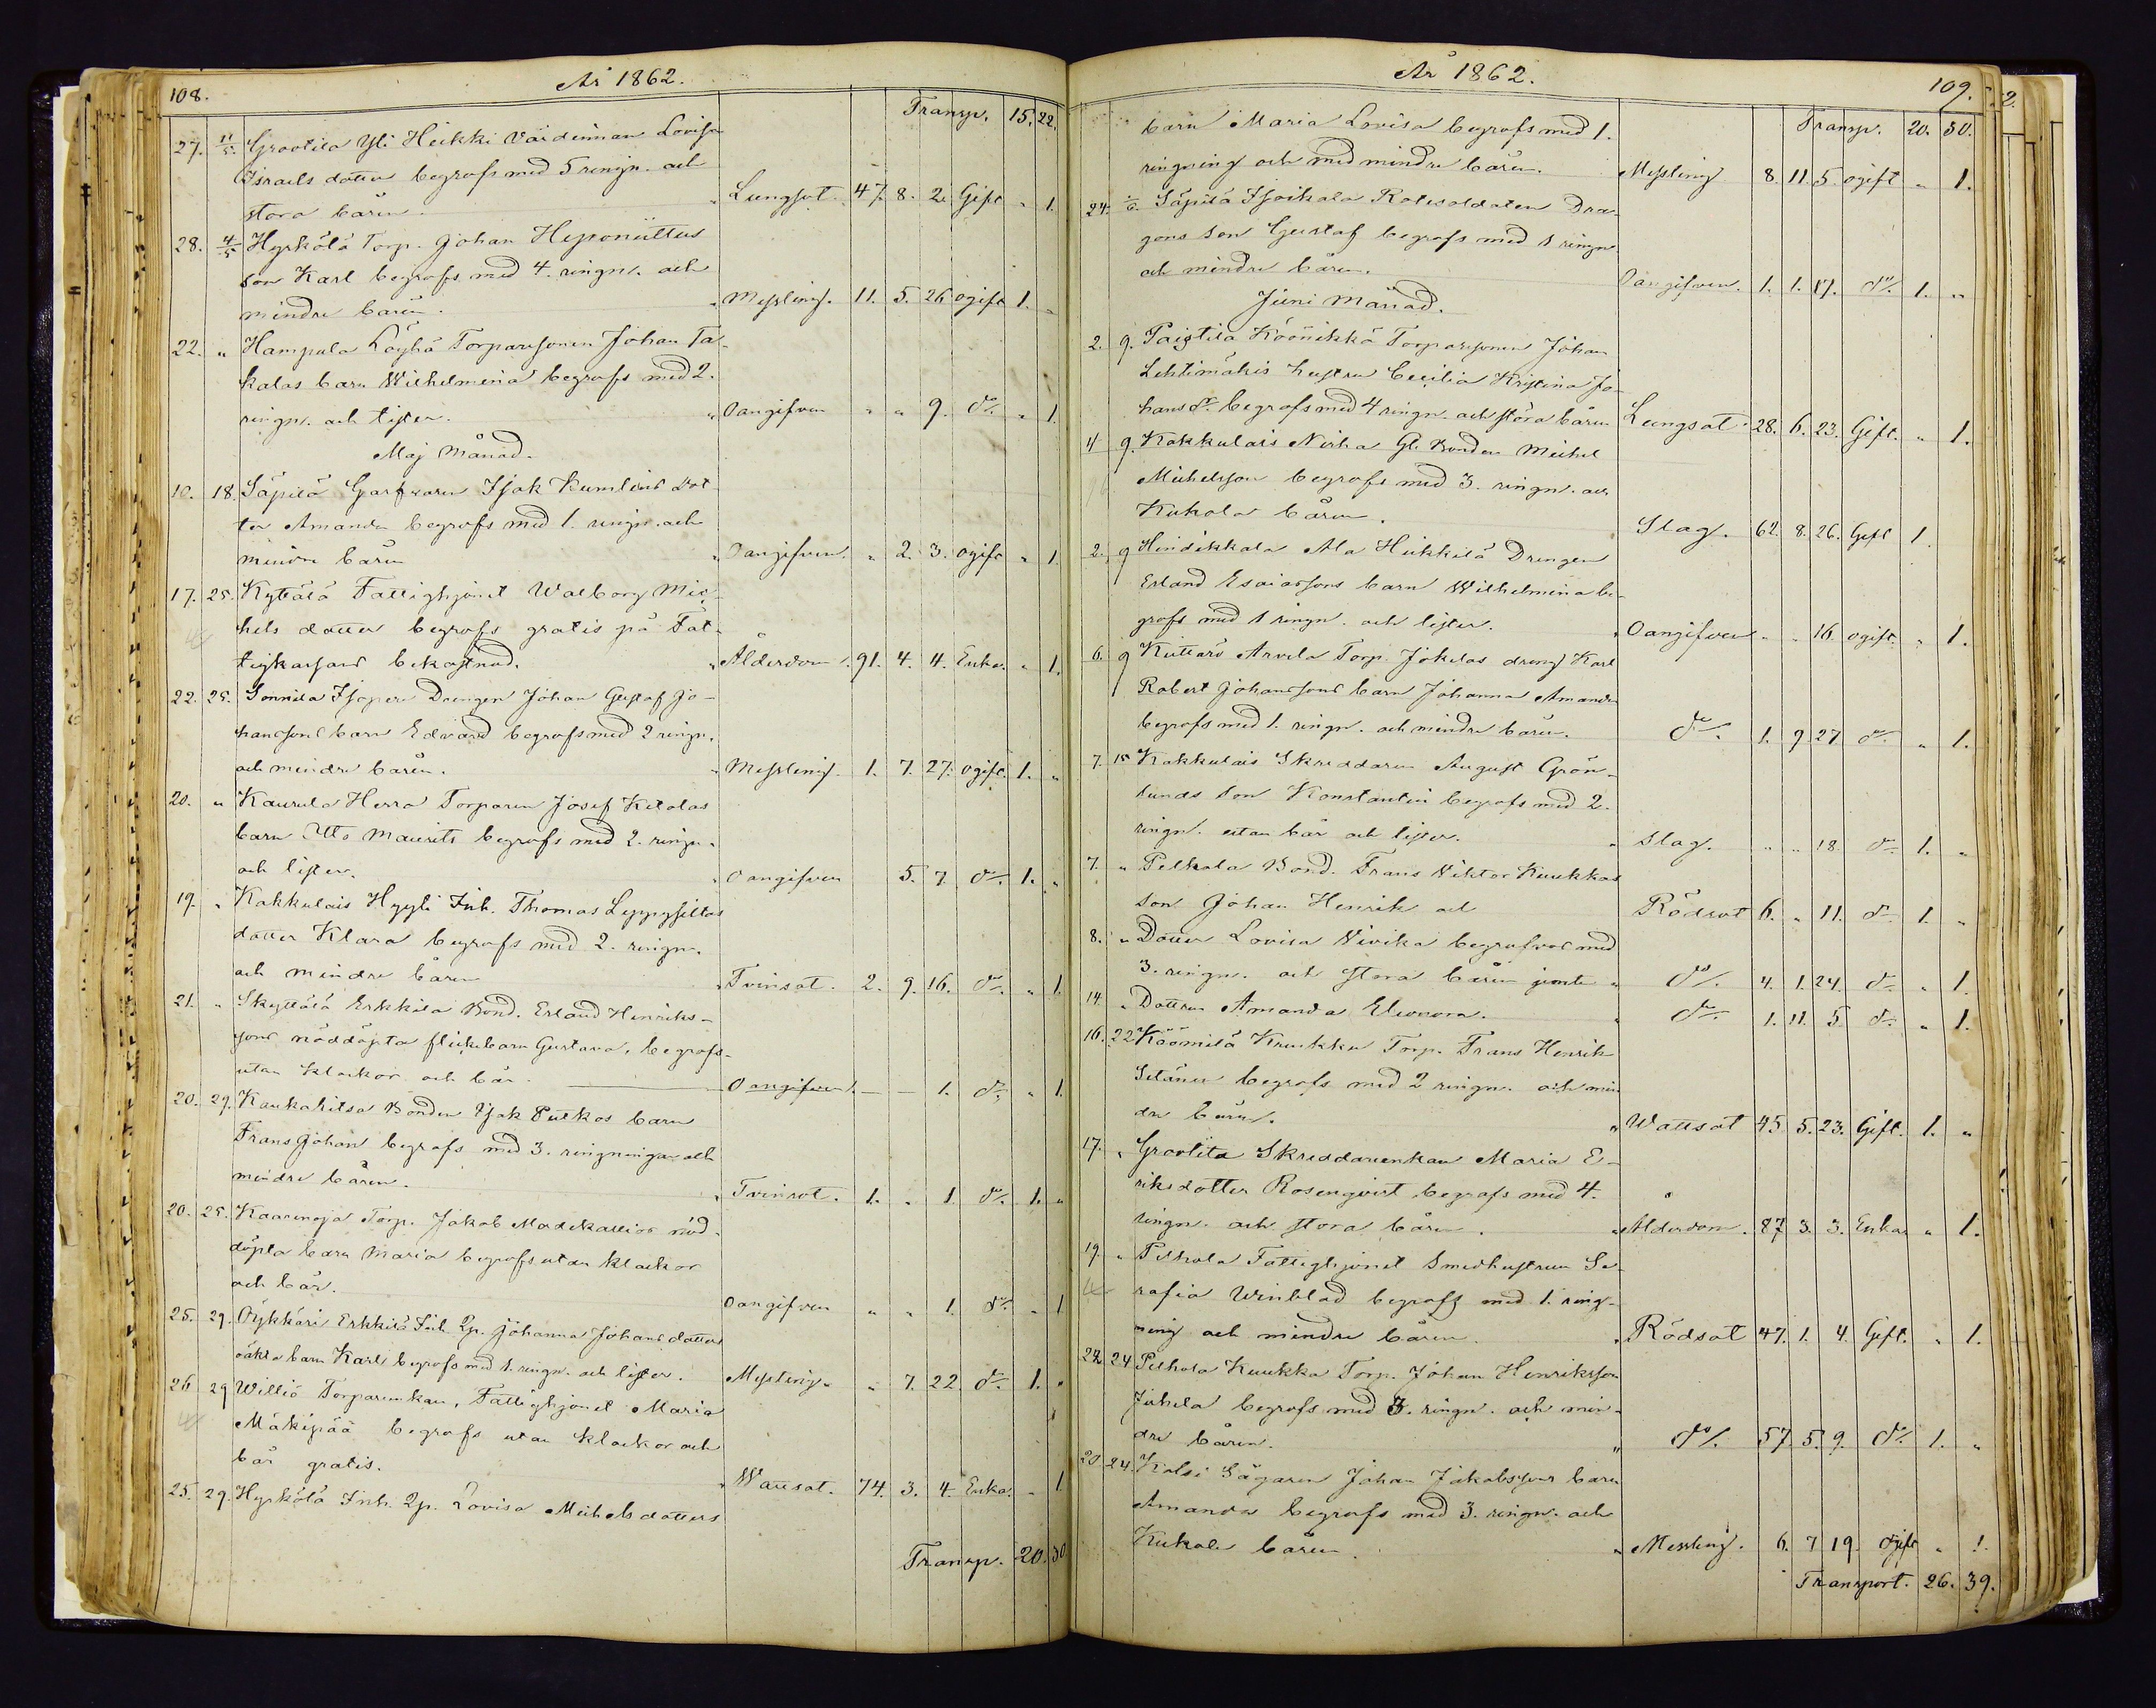 108. År 1862.
Transp. 15. 22.
27. 11/5. Grootila Yli Heikki Värdinnan Lovisa
Israels dotter begrofs med 5 ringn. och
stora båren. " Lungsot. 47. 8. 2. Gift " 1.
28. 4/5 Hyrkölä Torp. Johan Heponiittus
son Karl begrofs med 4. ringn. och
mindre båren. " Messling. 11. 5. 26 ogift 1. "
22. " Hampula Löyhä Torparesonen Johan Ta-
kalas barn Wilhelmina begrofs med 2.
ringn. och lister. " Oangifven " " 9. do. " 1.
Maj Månad.
10. 18. Säpilä Garfvaren Isak Kumlins dot
ter Amanda begrofs med 1. ringn. och
mindre båren " Oangifven. " 2. 3. ogift " 1.
17. 25. Kyttälä Fattighjonet Walborg Mic-
hels dotter begrofs gratis på Fat-
tigkassans bekostnad. " Ålderdom. 91. 4. 4. Enka. " 1.
22. 25. Sonnila Isopere Drengen Johan Gustaf Jo-
hanssons barn Edvard begrofs med 2 ringn.
och mindre båren. " Messling. 1. 7. 27. ogift. 1. "
20. " Kaurula Herra Torparen Josef Ketolas
barn Otto Maurits begrofs med 2. ringn.
och lister. " Oangifven 5. 7. do. 1. "
19. " Kakkulais Hyyli Inh. Thomas Leppysiltas
dotter Klara begrofs med 2. ringn.
och mindre båren " Tvinsot. 2. 9. 16. do. " 1.
21. " Skyttälä Erkkila Bond. Erland Henriks-
sons nöddöpta flickebarn Gustava, begrofs
utan klockor och bår. Oangifven. — — 1. do. " 1.
20. 29. Kaukaritsa Bonden Isak Putkos barn
Frans Johan begrofs med 3. ringningar och
mindre båren. " Tvinsot. 1. " 1. do. 1. "
20. 25. Kaarenoja Torp. Jakob Madekallios nöd-
döpta barn Maria begrofs utan klockor
och bår. Oangifven " " 1. do. " 1
25. 29. Öykkäri Erkkilä Inh. Qp. Johanna Johans dotters
oäkta barn Karl begrofs med 1. ringn. och lister. Messling " " 7. 22. do. 1. "
26 29 Williö Torparenkan, Fattighjonet Maria
Mäkipää begrofs utan klockor och
bår gratis. " Wattsot. 74. 3. 4. Enka. " 1
25. 29. Hyrkölä Inh. Qp. Lovisa Michels dotters
Transp. 20. 30
År 1862. 109.
Transp. 20. 30.
barn Maria Lovisa begrofs med 1.
ringning och med mindre båren. Messling 8. 11. 5. ogift " 1.
24. 1/6. Säpilä Isoikala Rotesoldaten Dra-
gons son Gustaf begrofs med 1 ringn.
och mindre båren. Oangifven. 1. 1. 17. do. 1. "
Juni Månad.
2. 9. Paistila Köönikkä Torparesonen Johan
Lehtimäkis hustru Cecilia Kristina Jo-
hans dr. begrofs med 4 ringn. och stora båren Lungsot. 28. 6. 23. Gift. " 1.
4 9. Kakkulais Nirha Gl. Bonden Michel
Michelsson begrofs med 3. ringn. och
Kukola båren. Slag. 62. 8. 26. Gift 1.
2. 9 Hindikkala Ala Heikkilä Drengen
Erland Esaiassons barn Wilhelmina be-
grofs med 1 ringn. och lister. " Oangifven " " 16. ogift. " 1.
6. 9 Kiettare Arvela Torp. Jokelas dreng Karl
Robert Johanssons barn Johanna Amanda
begrofs med 1. ringn. och mindre båren. do. 1. 9 27 do. " 1.
7. 15 Kakkulais Skreddaren August Grön-
lunds son Konstantin begrofs med 2.
ringn. utan bår och lister. " Slag. " " 18. do. 1. "
7. " Pelhola Bond. Frans Viktor Kuukkas
son Johan Henrik och Rödsot 6. " 11. do 1. "
8. " Dotter Lovisa Vivika begrofvos med
3. ringn. och stora båren jemte " do/. 4. 1. 24. do. " 1.
14. " Dottren Amanda Eleonora. " do. 1. 11. 5. do. " 1.
16. 22 Köömilä Kruukku Torp. Frans Henrik
Setänen begrofs med 2 ringn. och min
dre båren. " Wattsot 45 5. 23. Gift. 1. "
17. " Grootila Skreddarenkan Maria E-
riksdotter Rosenqvist begrofs med 4.
ringn. och stora båren. " Ålderdom. 87 3. 3. Enka " 1.
19. " Pelhola Fattighjonet Smedhustrun Se-
rafia Winblad begrofs med 1. ring-
ning och mindre båren. " Rödsot 47. 1. 4. Gift. " 1.
22 24 Pelhola Kuukka Torp. Johan Henriksson
Juhela begrofs med 3. ringn. och min-
dre båren. " do/. 57. 5. 9. do/. 1. "
20 24. Kolsi Sågaren Johan Jakobssons barn
Amanda begrofs med 3. ringn. och
Kukola båren. " Messling. 6. 7 19. Ogift " 1.
Transport. 26. 39.
2.